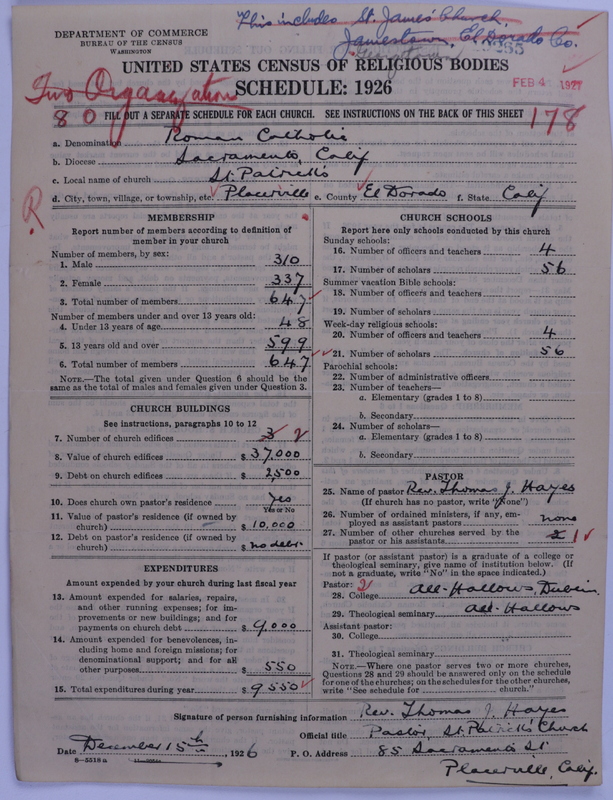 This includes St. James' Church,
Jamestown, El Dorado Co.
Georgetown
DEPARTMENT OF COMMERCE
BUREAU OF THE CENSUS
WASHINGTON
UNITED STATES CENSUS OF RELIGIOUS BODIES
SCHEDULE: 1926
FEB 4 1927
Two Organization
80 FILL OUT A SEPARATE SCHEDULE FOR EACH CHURCH. SEE INSTRUCTIONS ON THE BACK OF THIS SHEET 178
a. Denomination Roman Catholic
b. Diocese Sacramento, Calif
c. Local name of church St. Patrick's
d. City, town, village, or township, etc. Placerville e. County El Dorado f. State Calif
R
MEMBERSHIP
Report number of members according to definition of
member in your church
Number of members, by sex:
1. Male 310
2. Female 337
3. Total number of members 647
Number of members under and over 13 years old:
4. Under 13 years of age 48
5. 13 years old and over 599
6. Total number of members 647
NOTE.—The total given under Question 6 should be the
same as the total of males and females given under Question 3.
CHURCH BUILDINGS
See instructions, paragraphs 10 to 12
7. Number of church edifices 3 2
8. Value of church edifices $ 37,000
9. Debt on church edifices $ 2,500
10. Does church own pastor's residence Yes
Yes or No
11. Value of pastor's residence (if owned by
church) $ 10,000
12. Debt on pastor's residence (if owned by
church) $ no debt
EXPENDITURES
Amount expended by your church during last fiscal year
13. Amount expended for salaries, repairs,
and other running expenses; for im-
provements or new buildings; and for
payments on church debt $ 9,000
14. Amount expended for benevolences, in-
cluding home and foreign missions; for
denominational support; and for all
other purposes $ 550
15. Total expenditures during year $ 9550
CHURCH SCHOOLS
Report here only schools conducted by this church
Sunday schools:
16. Number of officers and teachers 4
17. Number of scholars 56
Summer vacation Bible schools:
18. Number of officers and teachers
19. Number of scholars
Week-day religious schools:
20. Number of officers and teachers 4
21. Number of scholars 56
Parochial schools:
22. Number of administrative officers
23. Number of teachers—
a. Elementary (grades 1 to 8)
b. Secondary
24. Number of scholars—
a. Elementary (grades 1 to 8)
b. Secondary
PASTOR
25. Name of pastor Rev. Thomas J. Hayes
(If church has no pastor, write "None")
26. Number of ordained ministers, if any, em-
ployed as assistant pastors none
27. Number of other churches served by the
pastor or his assistants 2 1
If pastor (or assistant pastor) is a graduate of a college or
theological seminary, give name of institution below. (If
not a graduate, write "No" in the space indicated.)
Pastor: 2
28. College All-Hallows, Dublin
29. Theological seminary All-Hallows
Assistant pastor:
30. College
31. Theological seminary
NOTE.—Where one pastor serves two or more churches,
Questions 28 and 29 should be answered only on the schedule
for one of the churches; on the schedules for the other churches,
write "See schedule for church."
Signature of person furnishing information Rev. Thomas J. Hayes
Official title Pastor, St. Patrick's Church
Date December 15th 1926 P. O. Address 85 Sacramento St
8—5518a Placerville, Calif.